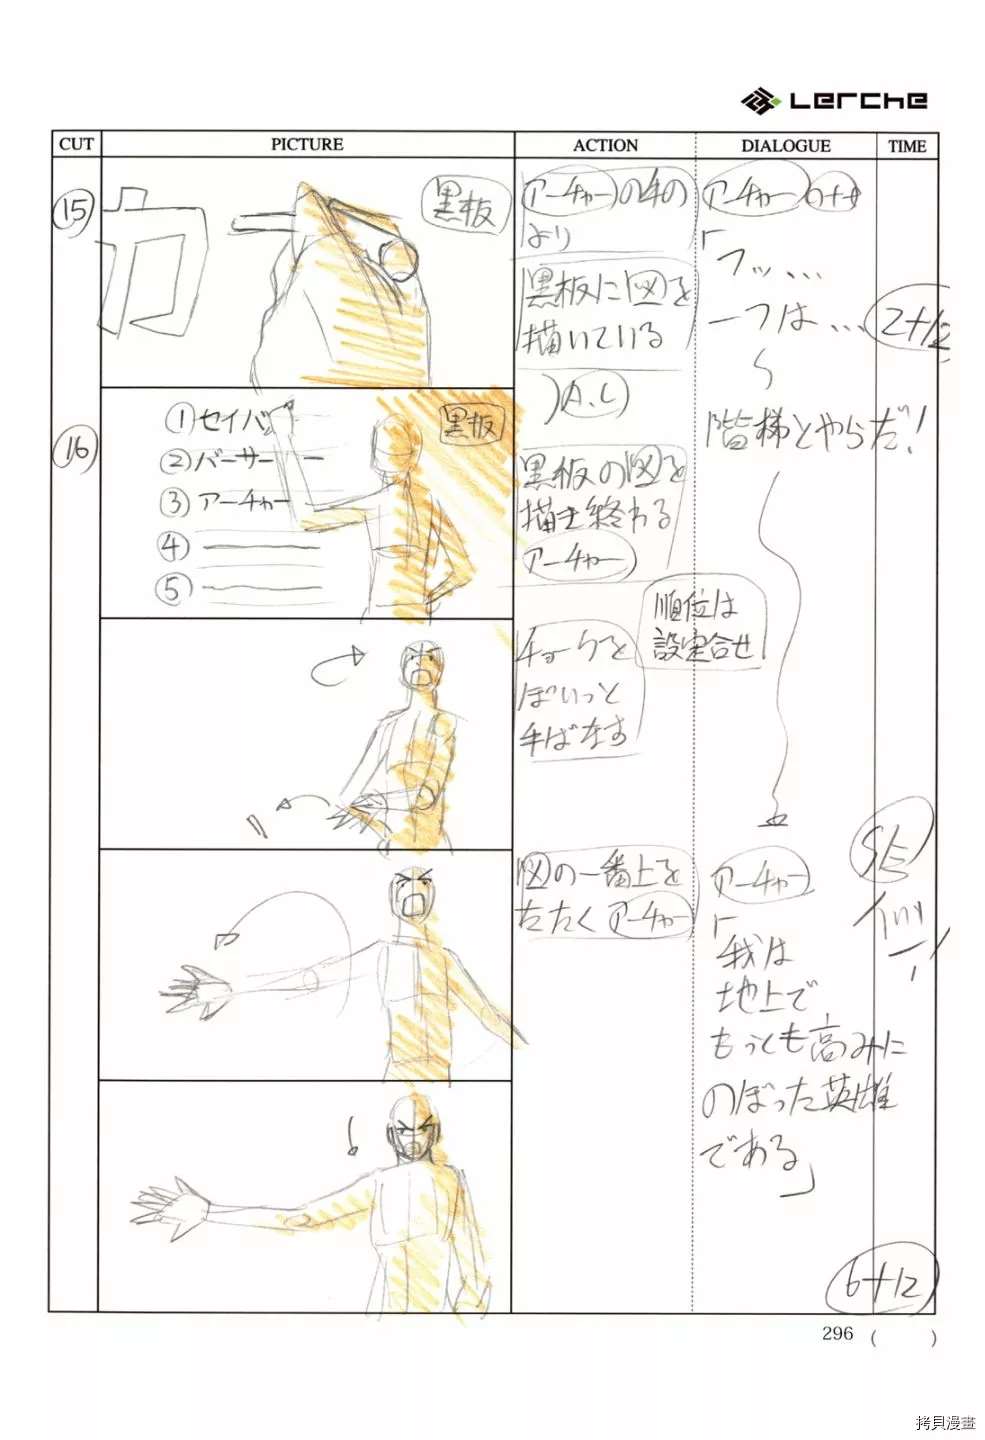 Lerche
CUT
PICTURE
ACTION
DIALOGUE
TIME
15
黒板
アーチャーの手の
より
黒板に図を
描いている
A.C
アーチャー
「フッ、、、
一つは、、、
階梯とやらだ!
2+12
16
①セイバー
②バーサーー
③アーチャー
④
⑤
黒板
黒板の図を
描き終わる
アーチャー
順位は
設定合せ
チョークを
ぽいっと
手ばなす
図の一番上を
たたくアーチャー
アーチャー
「我は
地上で
もっとも高みに
のぼった英雄
である」
SE
6+12
296 ( )
拷貝漫畫